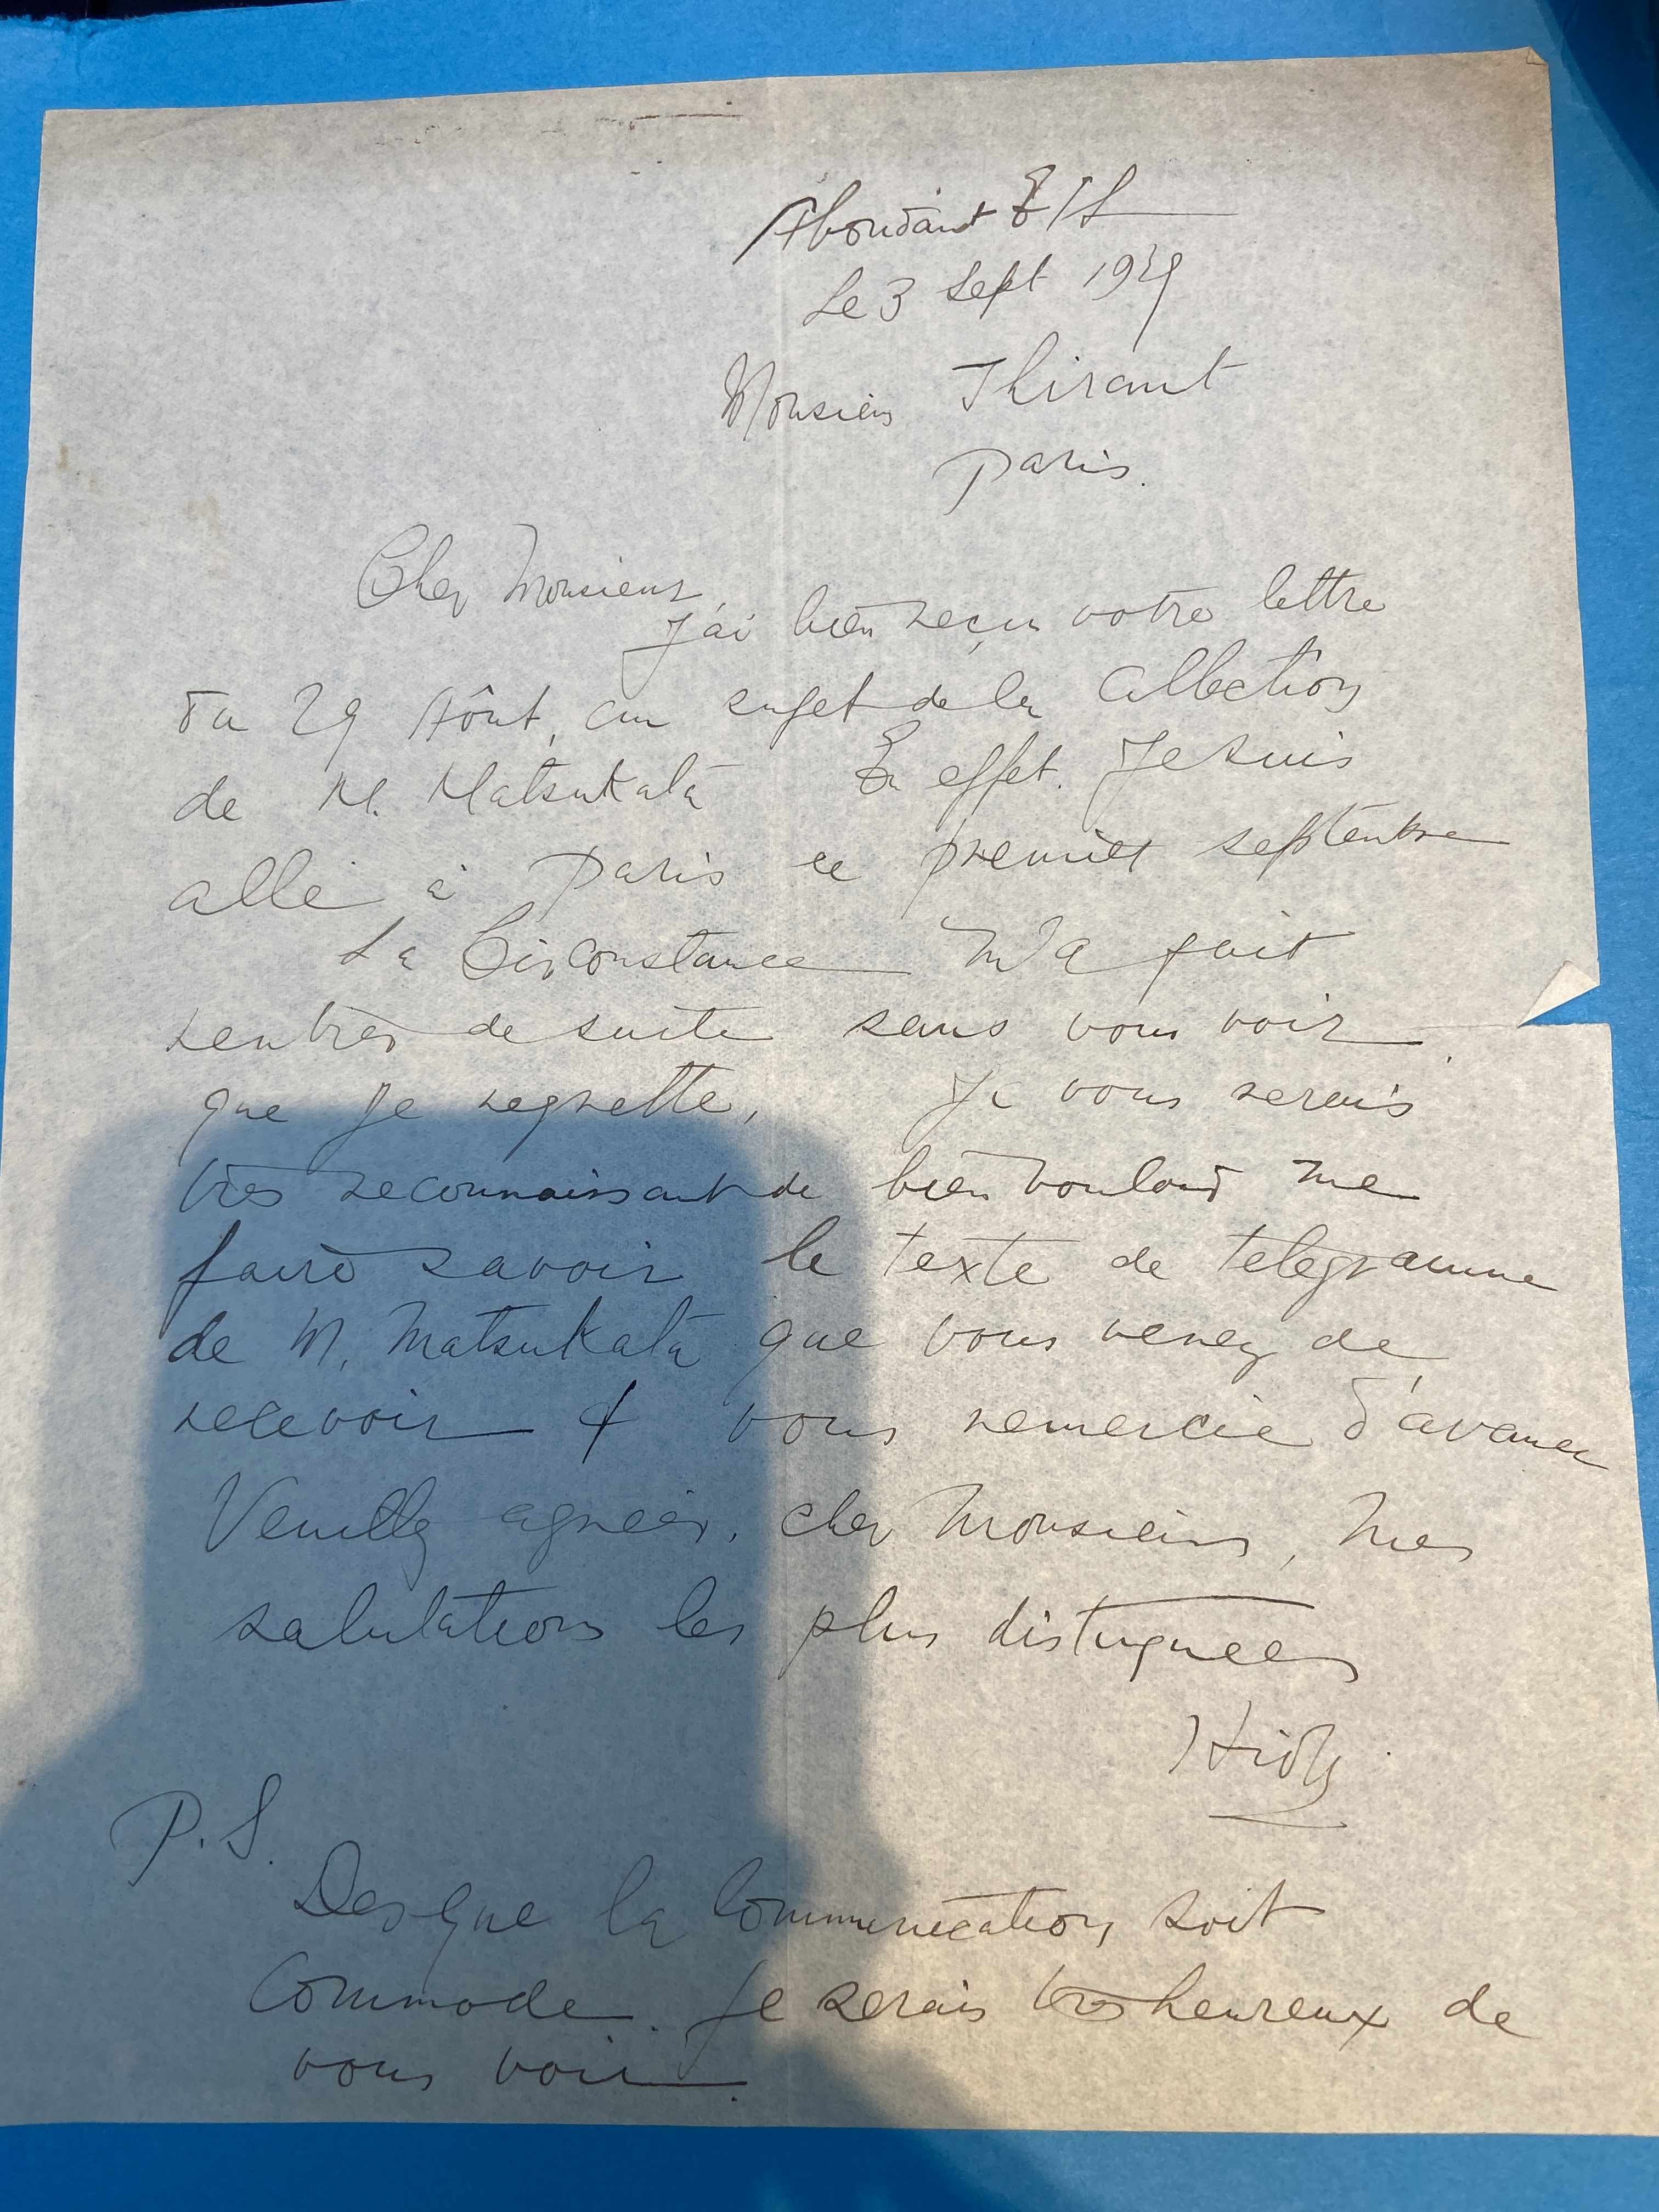 Abondant E & L
Le 3 Sept 1939
Monsieur Thiraut
Paris.
Cher Monsieur,
J'ai bien reçu votre lettre
du 29 Aôut, au sujet de la Collection
de M. Matsukata En effet. Je suis
allé à Paris le premier septembre
La Circonstance m'a fait
rentrer de suite sans vous voir.
que je regrette, Je vous serais
très reconnaissant de bien vouloir me
faire savoir le texte de telegramme
de M. Matsukata que vous venez de
recevoir & vous remercie d'avance
Veuillez agréer, cher Monsieur, mes
salutations les plus distinguées
P.S.
Des que la Communication soit
Commode. Je serais très heureux de
vous voir.